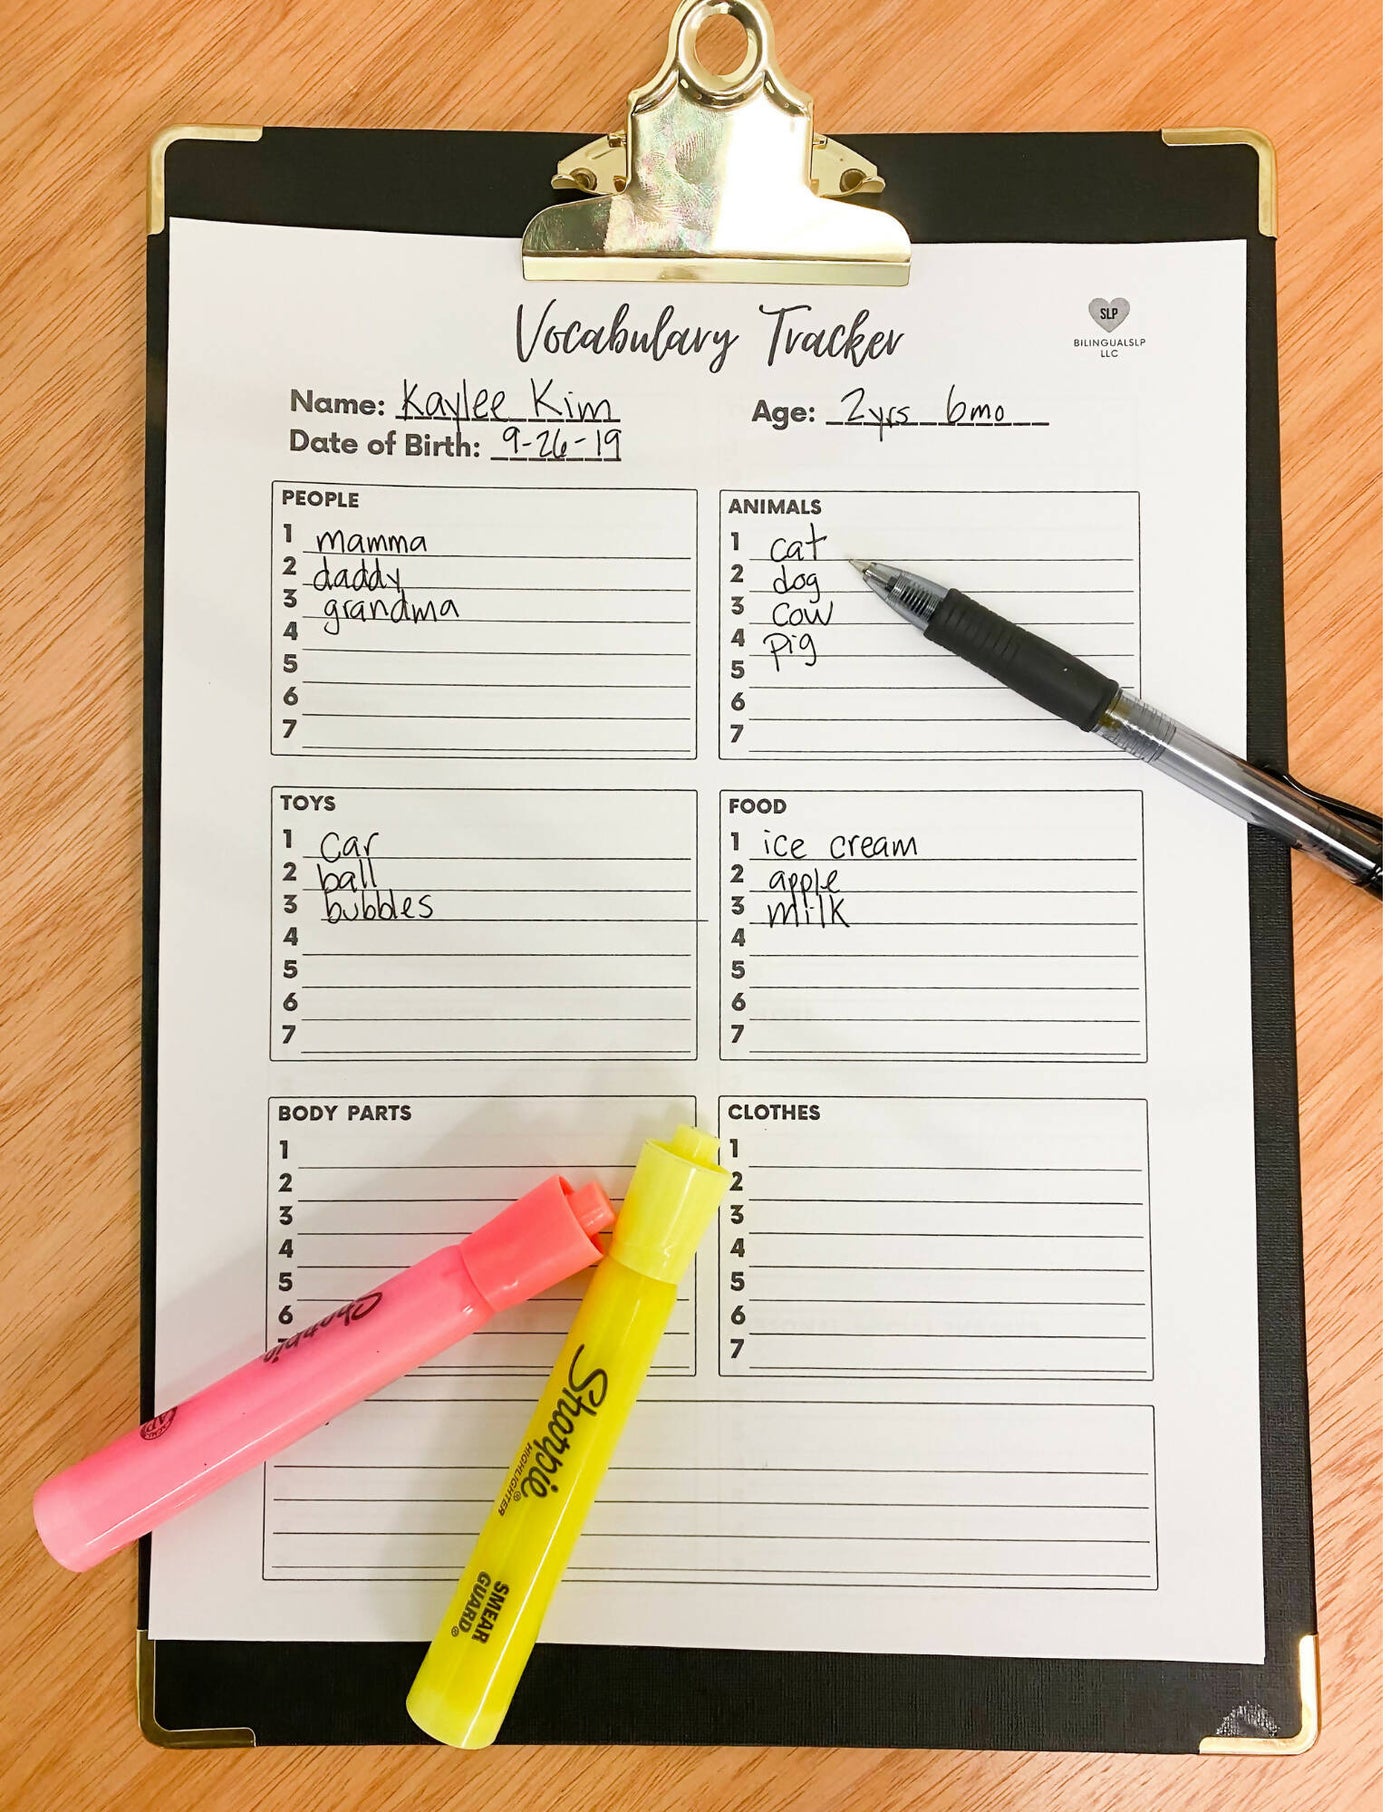 Vocabulary Tracker
SLP
BILINGUALSLP
LLC
Name: Kaylee Kim
Age: 2yrs 6mo
Date of Birth: 9-26-19
PEOPLE
1 mamma
2 daddy
3 grandma
4
5
6
7
ANIMALS
1 cat
2 dog
3 cow
4 pig
5
6
7
TOYS
1 car
2 ball
3 bubbles
4
5
6
7
FOOD
1 ice cream
2 apple
3 milk
4
5
6
7
BODY PARTS
1
2
3
4
5
6
CLOTHES
1
2
3
4
5
6
7
Sharpie
Sharpie
HIGHLIGHTER
SMEAR
GUARD®